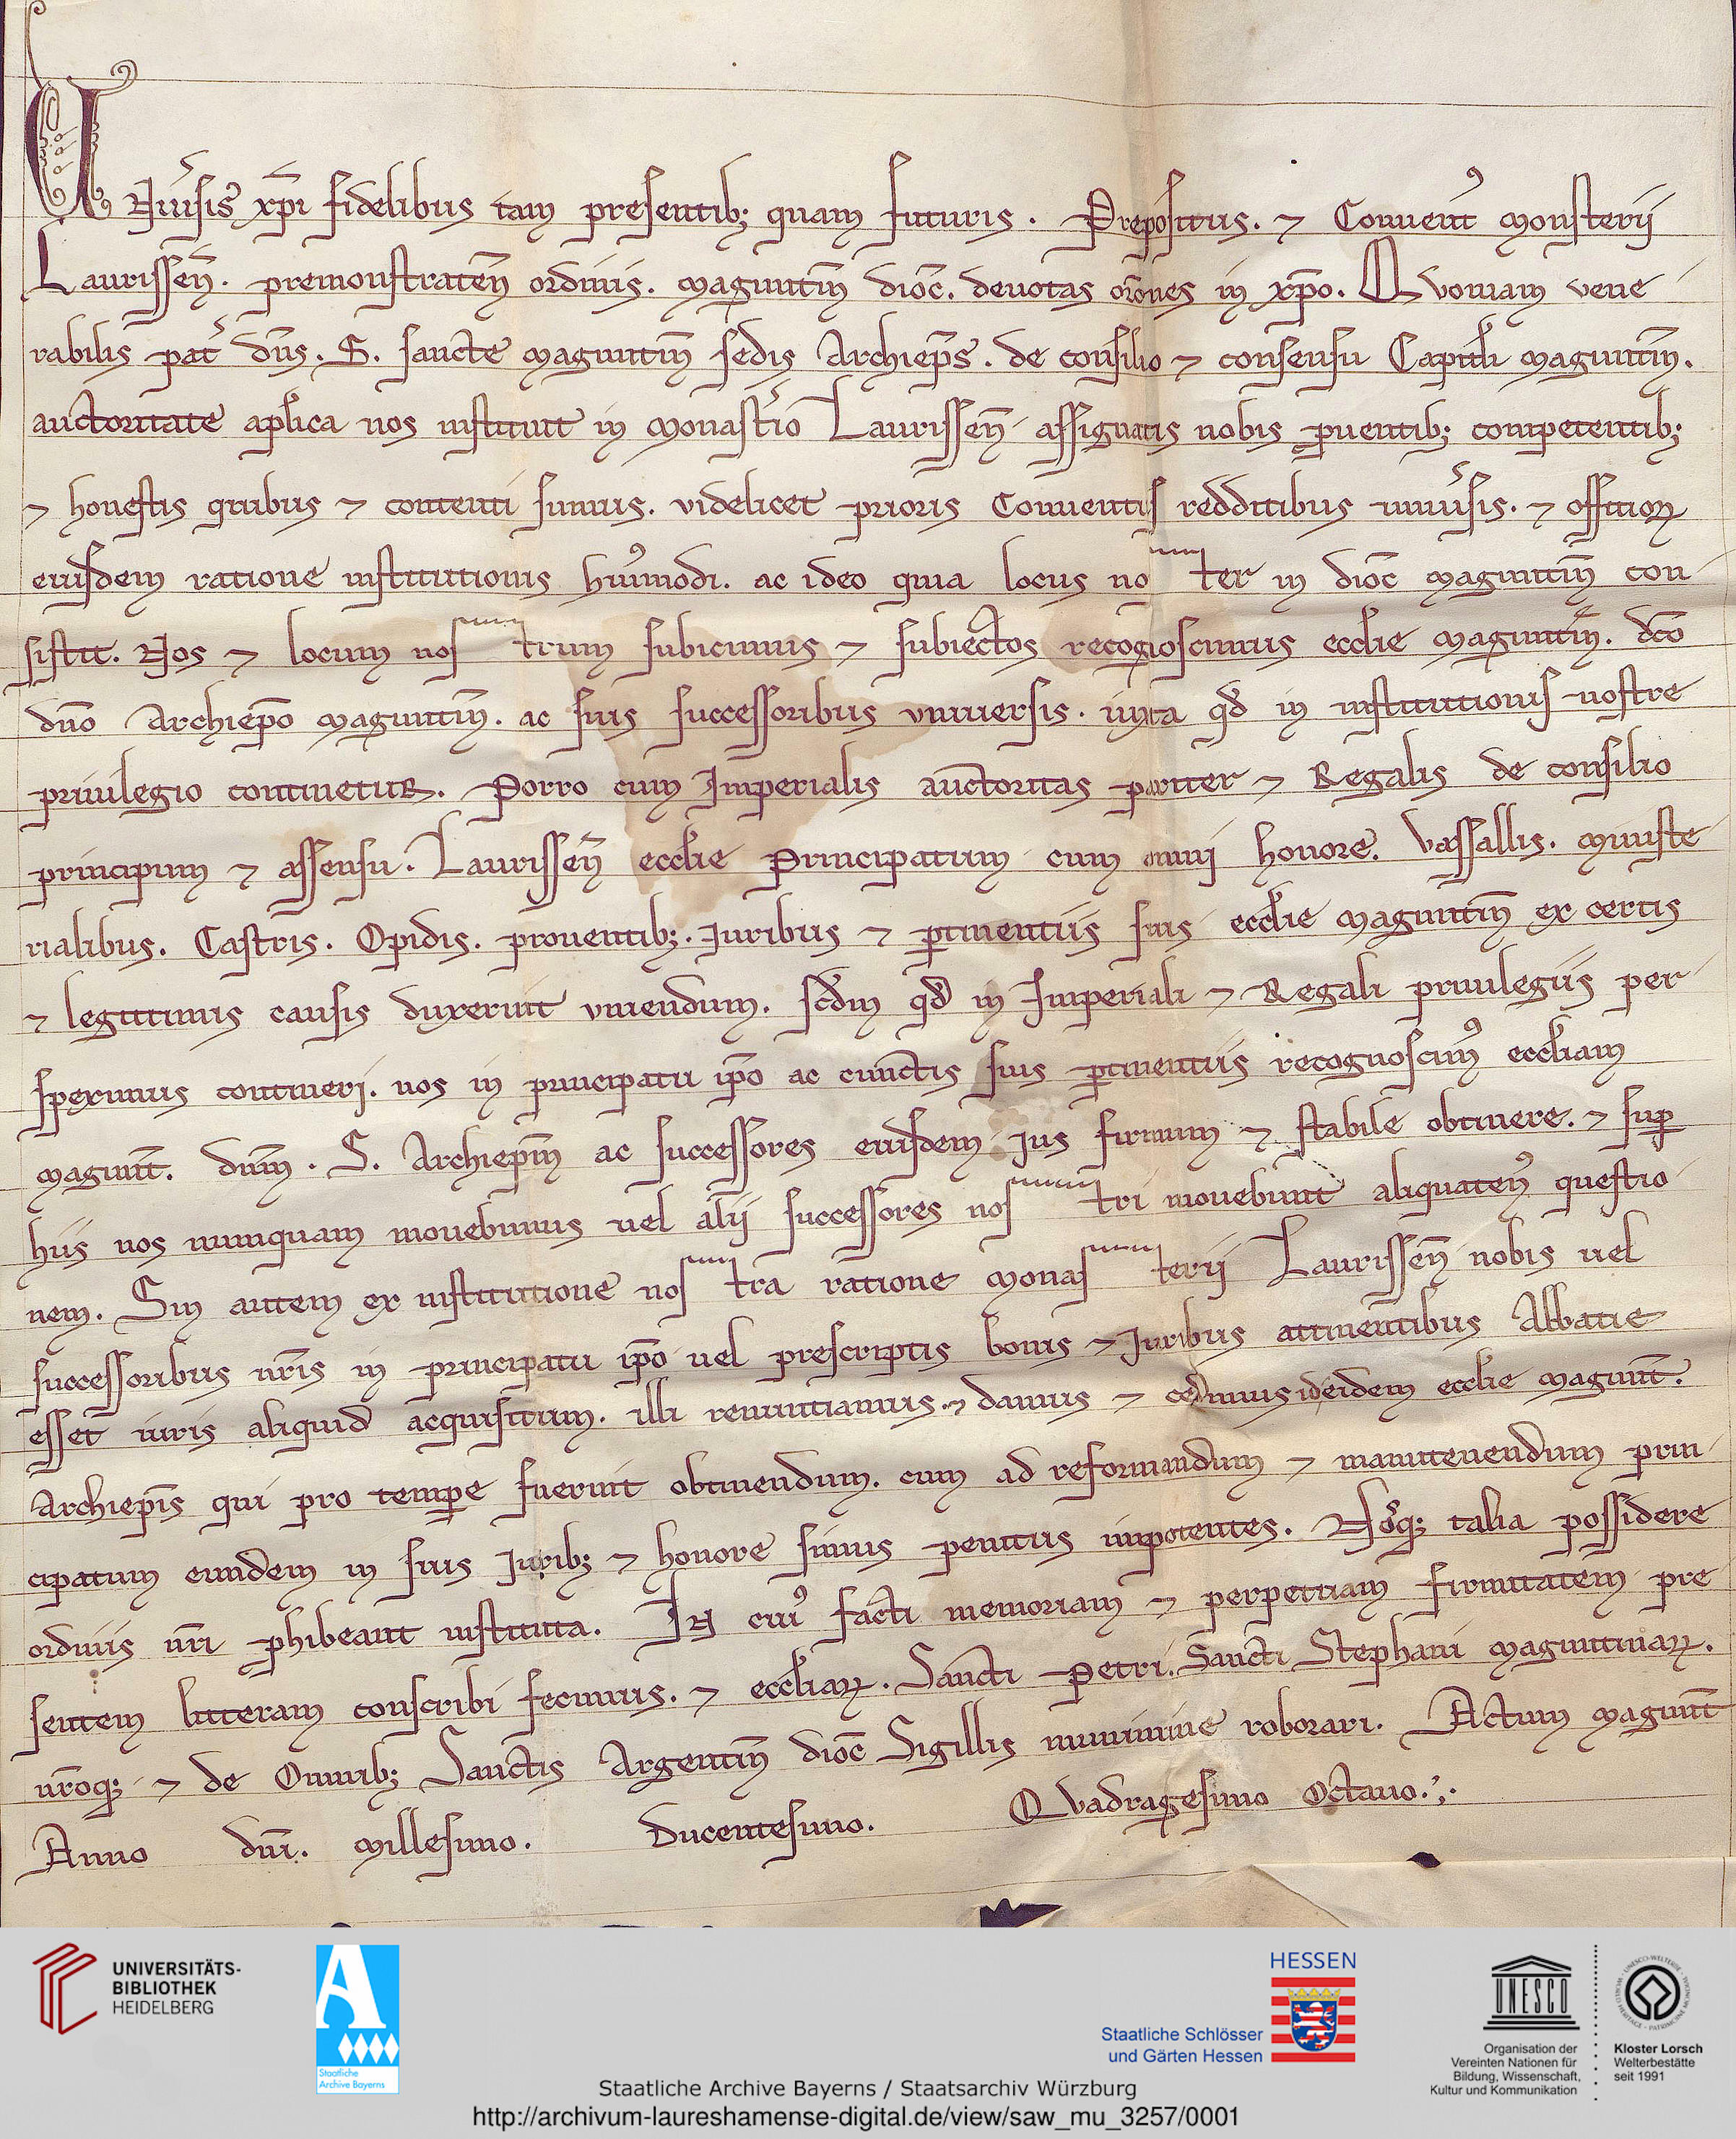 UNiu̾sis xp̅i fidelibus tam presentib; quam futuris. Prepositus. ⁊ Conuent᾽ monsterij
Laurissen̅. premonstraten̅ ordinis. maguntin̅ dioc̅. deuotas or̅ones in xp̅o. Quoniam vene
rabilis pat̾ dn̅s. S. sancte maguntin̅ sedis Archiep̅s. de consilio ⁊ consensu Capitl̅i maguntin̅.
auctoritate ap̅lica nos instituit in monast̾io Laurissen̅ assignatis nobis ꝓuentib; competentib;
⁊ honestis quibus ⁊ contenti sumus. videlicet prioris Conuentus redditibus uniu̾sis. ⁊ offitioꝝ
eiusdem ratione institutionis hui᾽modi. ac ideo quia locus noster in dioc̅ maguntin̅ con
sistit. Nos ⁊ locum nostrum subicimus ⁊ subiectos recognoscimus eccl̅ie maguntin̅. dc̅o
dn̅o Archiep̅o maguntin̅. ac suis successoribus vniuersis. iuxta qd̅ in institutionis nostre
priuilegio continetur. Porro cum Imperialis auctoritas pariter ⁊ Regalis de consilio
principum ⁊ assensu. Laurissen̅ eccl̅ie Principatum cum omni honore. vassallis. ministe
rialibus. Castris. Opidis. prouentib;. Iuribus ⁊ ꝑtinentiis suis eccl̅ie maguntin̅ ex certis
⁊ legitimis causis duxerint vniendum. scd̅m qd̅ in Imperiali ⁊ Regali priuilegiis per
speximus contineri. nos in principatu ip̅o ac cunctis suis ꝑtinentiis recognoscim᾽ eccl̅iam
magunt̅. dn̅m. S. Archiep̅m ac successores eiusdem ius firmum ⁊ stabile obtinere. ⁊ suꝑ
hiis nos numquam mouebimus uel alij successores nostri mouebunt aliquaten᾽ questio
nem. Sin autem ex institutione nostra ratione monasterij Laurissen̅ nobis uel
successoribus nr̅is in principatu ip̅o uel prescriptis bonis ⁊ Iuribus attinentibus Abbatie
esset iuris aliquid acquisitum. illi renuntiamus. ⁊ damus ⁊ cedimus id eidem eccl̅ie magunt̅.
Archiep̅is qui pro tempe̅ fuerint obtinendum. cum ad reformandum ⁊ manutenendum prin
cipatum eundem in suis Iurib; ⁊ honore simus penitus impotentes. Nosq; talia possidere
ordinis nr̅i ꝓhibeant instituta. IN cui᾽ facti memoriam ⁊ perpetuam firmitatem pre
sentem litteram conscribi fecimus. ⁊ eccl̅iaꝝ. Sancti Petri. Sancti Stephani maguntinaꝝ.
nr̅oq; ⁊ de Omnib; Sanctis Argentin̅ dioc̅ Sigillis munimine roborari. Actum magunt̅
Anno dn̅i. millesimo. Ducentesimo. Quadragesimo Octauo.
UNIVERSITÄTS-
BIBLIOTHEK
HEIDELBERG
Staatliche
Archive Bayerns
HESSEN
Staatliche Schlösser
und Gärten Hessen
UNESCO
Organisation der
Vereinten Nationen für
Bildung, Wissenschaft,
Kultur und Kommunikation
Kloster Lorsch
Welterbestätte
seit 1991
Staatliche Archive Bayerns / Staatsarchiv Würzburg
http://archivum-laureshamense-digital.de/view/saw_mu_3257/0001